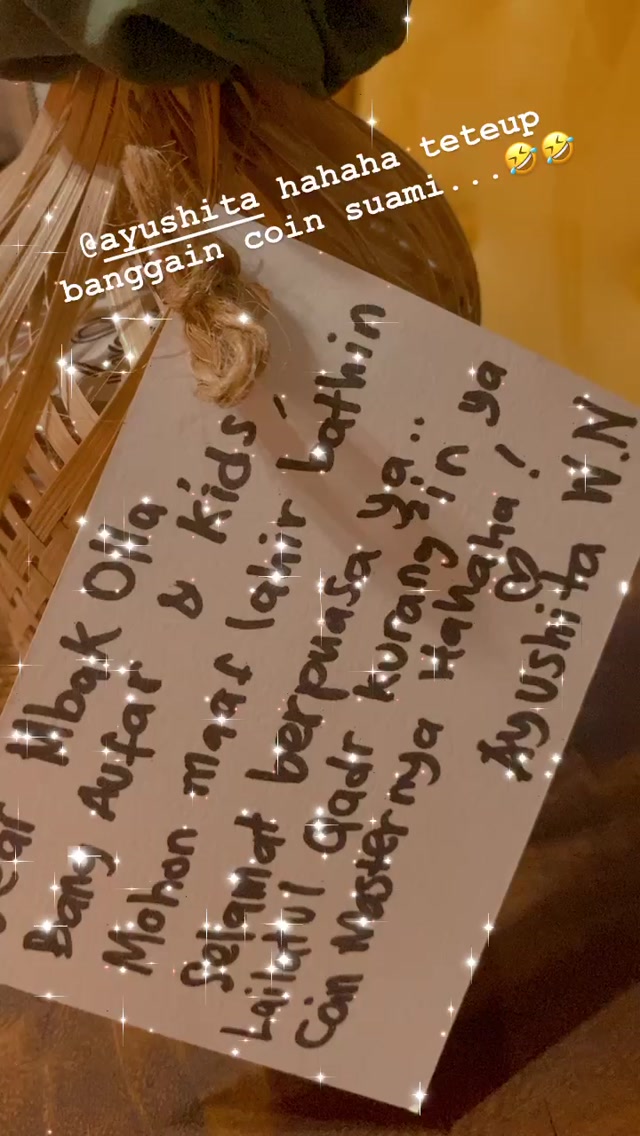 @ayushita hahaha teteup
banggain coin suami...🤣🤣
Mbak Olla
Bang Aufar & kids,
Mohon maaf lahir bathin
Selamat berpuasa ya..
Lailatul Qadr kurang in
Coin Masternya Hahaha! ya
♡
Ayushita W.N